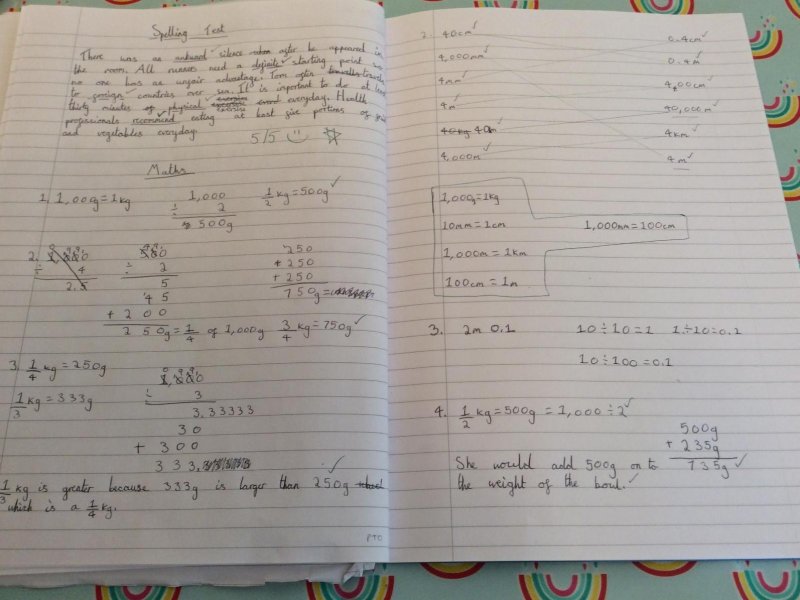 Spelling Test
There was an awkward silence when after he appeared in
the room. All runners need a definite starting point so
no one has an unfair advantage. Tom often travels
to foreign countries over sea. It is important to do at least
thirty minutes of physical exercise everyday. Health
proffisionals recommend eating at least five portions of fruit
and vegetables everyday
5/5
Maths
1. 1,000g = 1kg
1,000
÷ 2
500g
1/2 kg = 500g
2.
÷ 4
2.5
÷ 2
5
45
+ 200
250g = 1/4 of 1,000g
250
+ 250
+ 250
750g =
3/4 kg = 750g
3. 1/4 kg = 250g
1/3 kg = 333g
÷ 3
3.33333
30
+ 300
333.
1/3 kg is greater because 333g is larger than 250g
which is a 1/4 kg.
PTO
2. 40cm
0.4cm
4,000mm
0.4m
4mm
4,00cm
4m
40,000m
40kg 40m
4km
4,000m
4m
1,000g = 1kg
10mm = 1cm
1,000mm = 100cm
1,000m = 1km
100cm = 1m
3. 2m 0.1
10 ÷ 10 = 1
1 ÷ 10 = 0.1
10 ÷ 100 = 0.1
4. 1/2 kg = 500g = 1,000 ÷ 2
500g
+ 235g
735g
She would add 500g on to
the weight of the bowl.